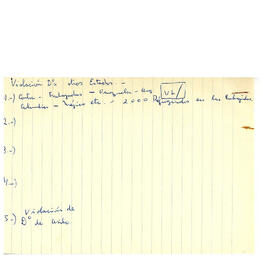 Violación Dº. otros Estados. -
1.-) Contra - Embajadas - Venezuela - 
Colombia - México etc. - 2000 Refugiados en las Embajadas
2.-)
3.-)
4.-)
5.-) Violación de
Dº de Asilo.